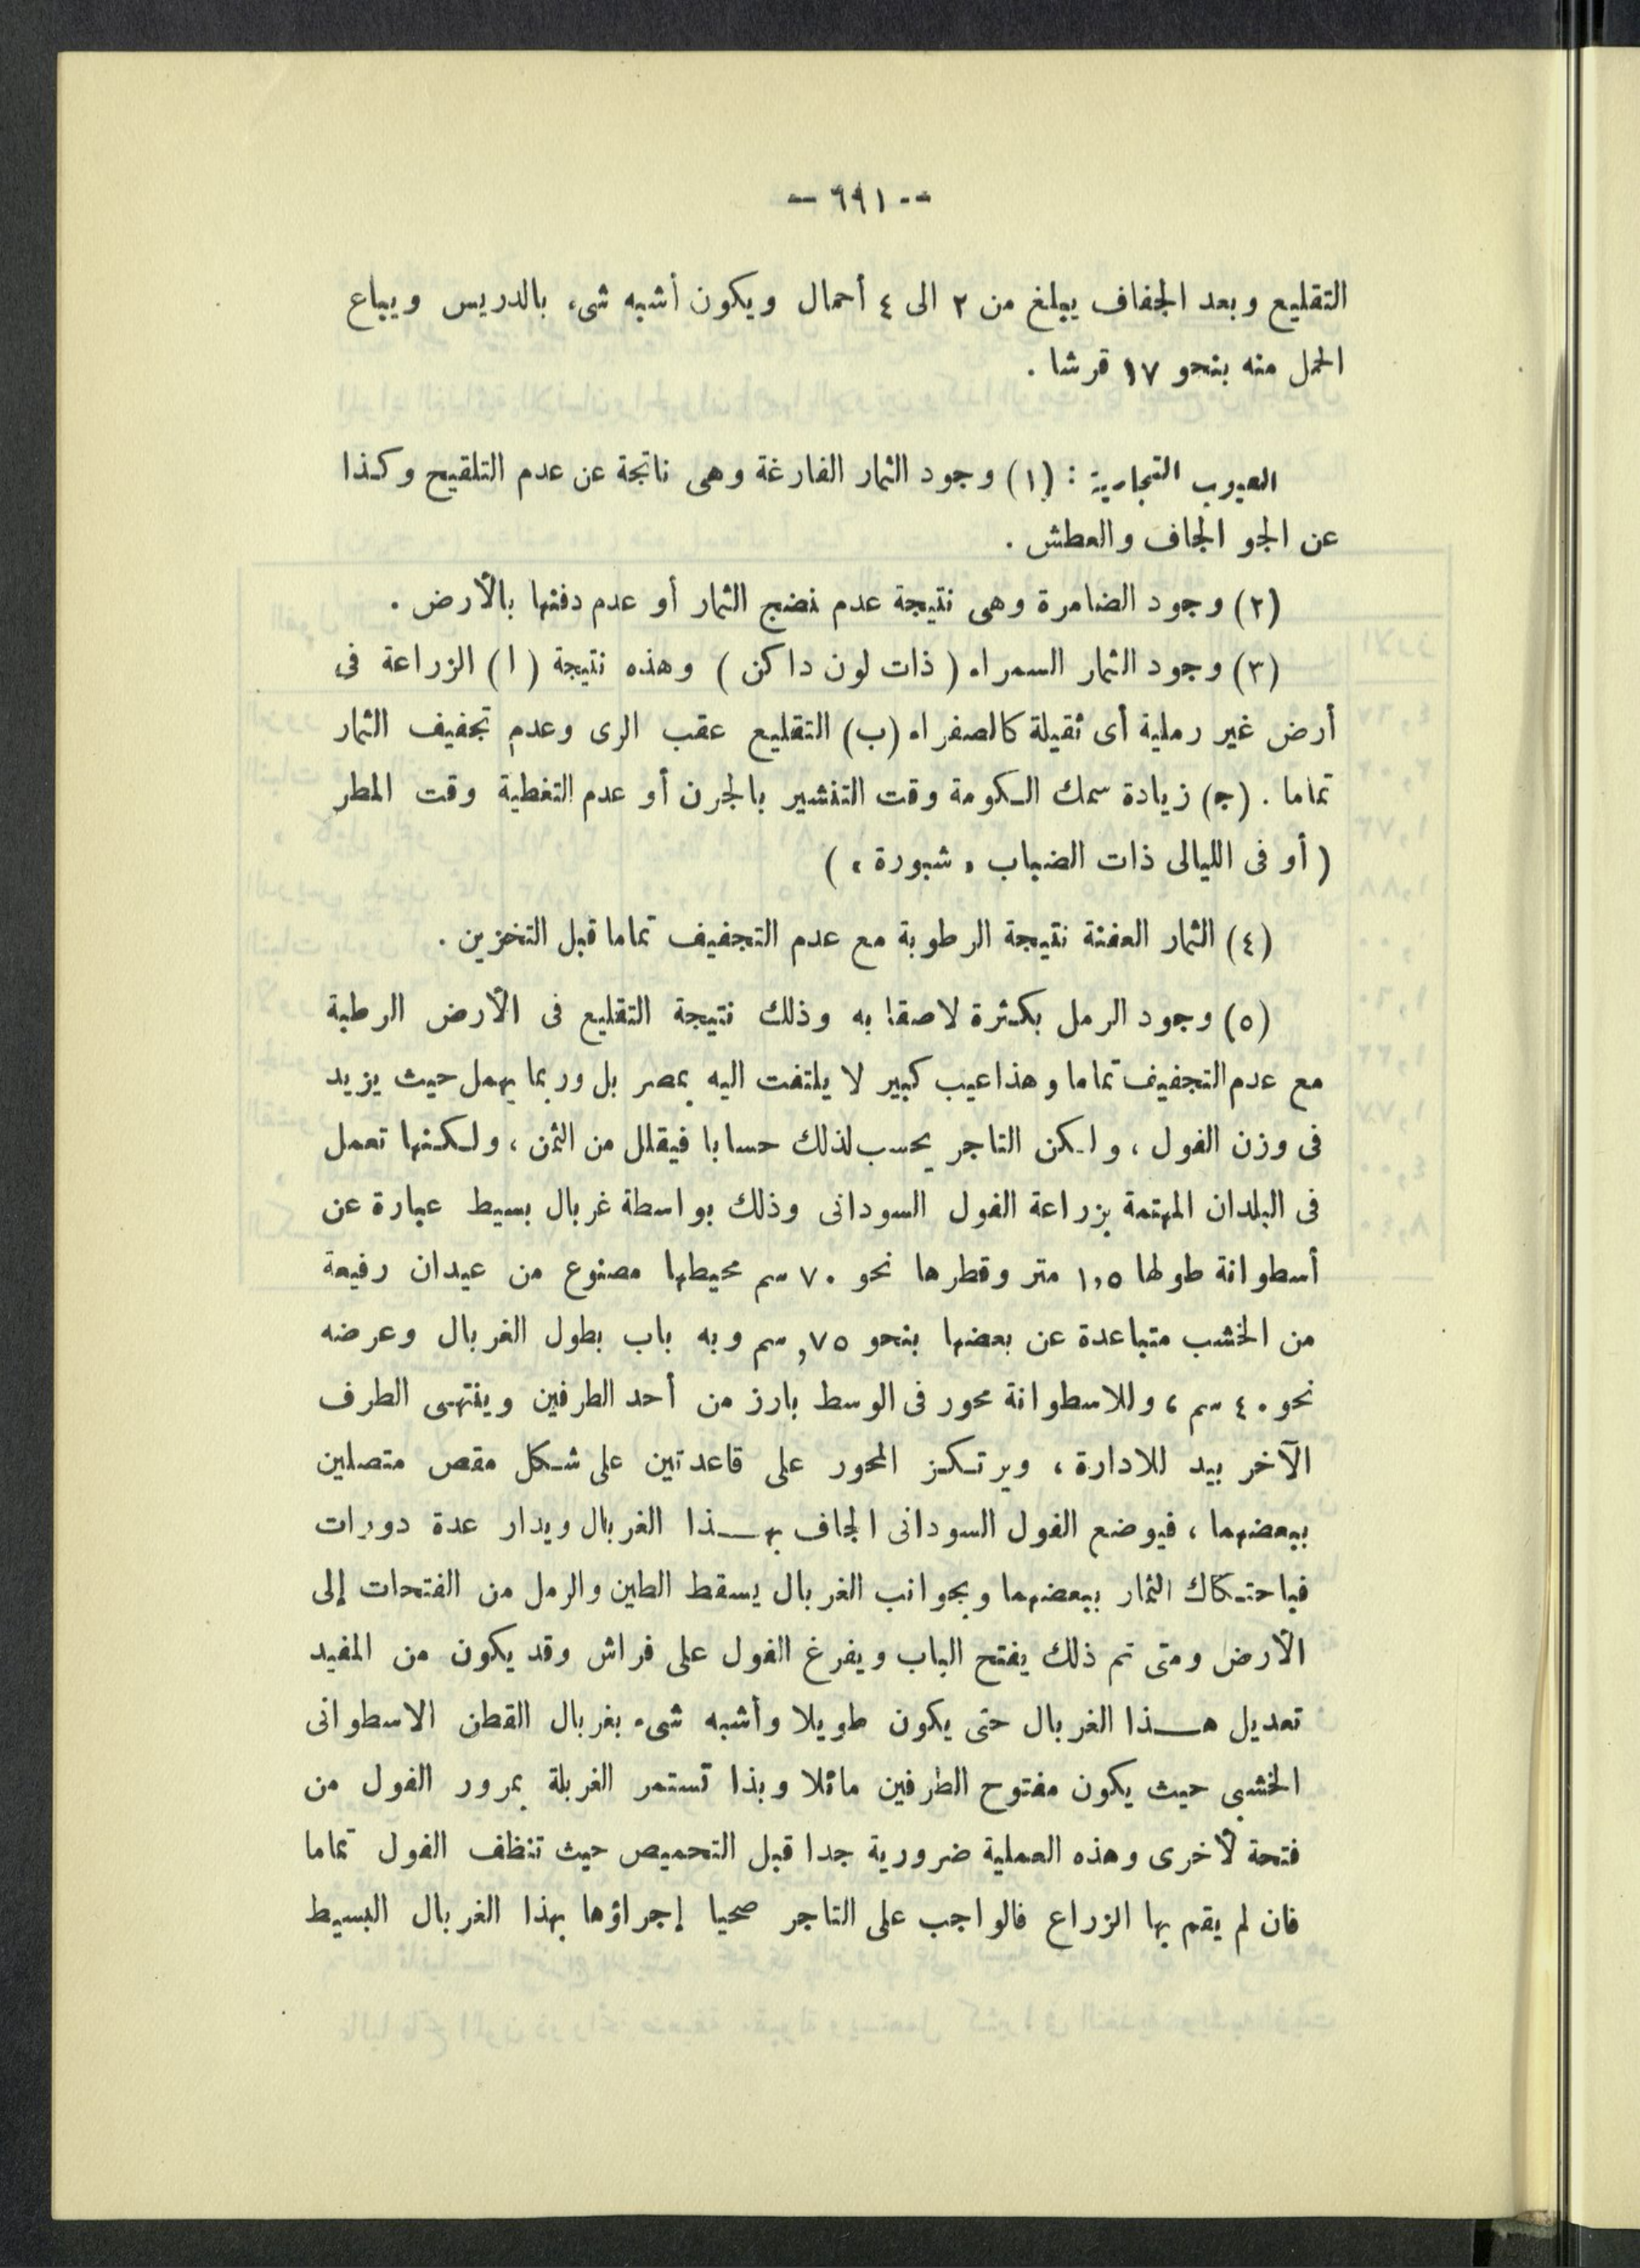 — ٦٩١ —
التقليع وبعد الجفاف يبلغ من ٢ الى ٤ أحمال ويكون أشبه شىء بالدريس ويباع
الحمل منه بنحو ١٧ قرشا .
العيوب التجارية : (١) وجود الثمار الفارغة وهى ناتجة عن عدم التلقيح وكذا
عن الجو الجاف والعطش .
(٢) وجود الضامرة وهى نتيجة عدم نضج الثمار أو عدم دفنها بالأرض .
(٣) وجود الثمار السمراء ( ذات لون داكن ) وهذه نتيجة ( ا ) الزراعة فى
أرض غير رملية أى ثقيلة كالصفراء (ب) التقليع عقب الرى وعدم تجفيف الثمار
تماما . (ج) زيادة سمك الكومة وقت التنشير بالجرن أو عدم التغطية وقت المطر
( أو فى الليالى ذات الضباب « شبورة » )
(٤) الثمار العفنة نتيجة الرطوبة مع عدم التجفيف تماما قبل التخزين .
(٥) وجود الرمل بكثرة لاصقا به وذلك نتيجة التقليع فى الأرض الرطبة
مع عدم التجفيف تماما وهذا عيب كبير لا يلتفت اليه بمصر بل وربما يهمل حيث يزيد
فى وزن الفول ، ولكن التاجر يحسب لذلك حسابا فيقلل من الثمن ، ولكنها تعمل
فى البلدان المهتمة بزراعة الفول السودانى وذلك بواسطة غربال بسيط عبارة عن
أسطوانة طولها ١,٥ متر وقطرها نحو ٧٠ سم محيطها مصنوع من عيدان رفيعة
من الخشب متباعدة عن بعضها بنحو ٧٥, سم وبه باب بطول الغربال وعرضه
نحو ٤٠ سم ، وللاسطوانة محور فى الوسط بارز من أحد الطرفين وينتهى الطرف
الآخر بيد للادارة ، ويرتكز المحور على قاعدتين على شكل مقص متصلين
ببعضهما ، فيوضع الفول السودانى الجاف بهذا الغربال ويدار عدة دورات
فباحتكاك الثمار ببعضهما وبجوانب الغربال يسقط الطين والرمل من الفتحات إلى
الأرض ومتى تم ذلك يفتح الباب ويفرغ الفول على فراش وقد يكون من المفيد
تعديل هذا الغربال حتى يكون طويلا وأشبه شىء بغربال القطن الاسطوانى
الخشبى حيث يكون مفتوح الطرفين مائلا وبذا تستمر الغربلة بمرور الفول من
فتحة لأخرى وهذه العملية ضرورية جدا قبل التحميص حيث تنظف الفول تماما
فان لم يقم بها الزراع فالواجب على التاجر صحيا إجراؤها بهذا الغربال البسيط